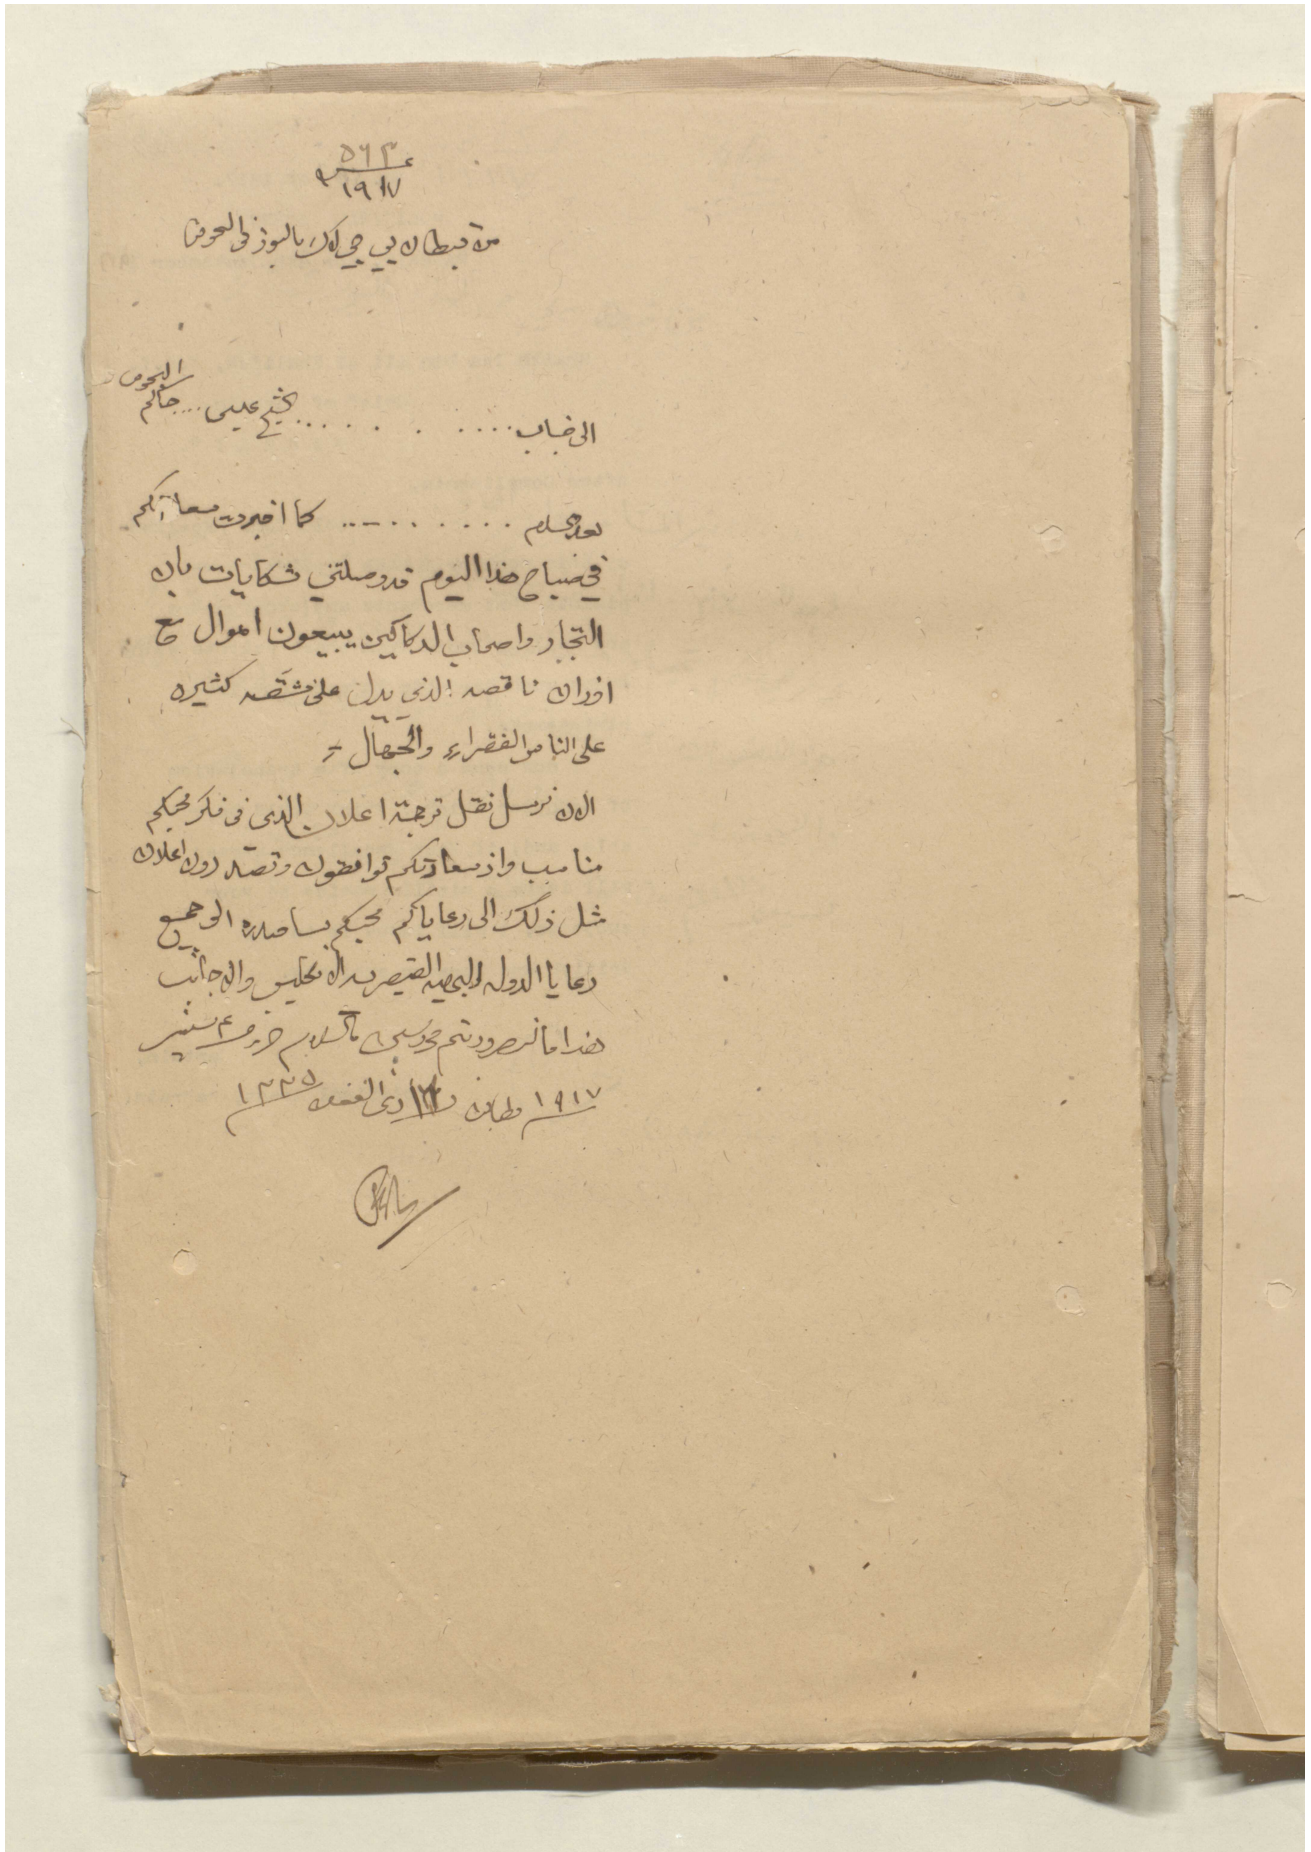 ٥٦٣
١٩١٧
من قبطان بي جي لاك باليوز في البحرين
الى جناب .... الشيخ عيسى ... حاكم البحرين
بعد السلام ........ كما اخبرت سعادتكم
في صباح هذا اليوم قد وصلتني شكايات بان
التجار واصحاب الدكاكين يبيعون اموال مع
اوزان ناقصه الذي يدل على مشقه كثيره
على الناس الفقراء والجهال -
الان نرسل نقل ترجمة اعلان الذي في فكر محبكم
مناسب واذ سعادتكم توافقون وتصدرون اعلان
مثل ذلك الى رعاياكم محبكم يصدره الى جميع
رعايا الدوله البهيه القيصريه الانكليس والاجانب
هذا ما لزم ودتم محروسين والسلام حرر ٤ سبتمبر
١٩١٧ مطابق ١٦ ذي القعده ١٣٣٥